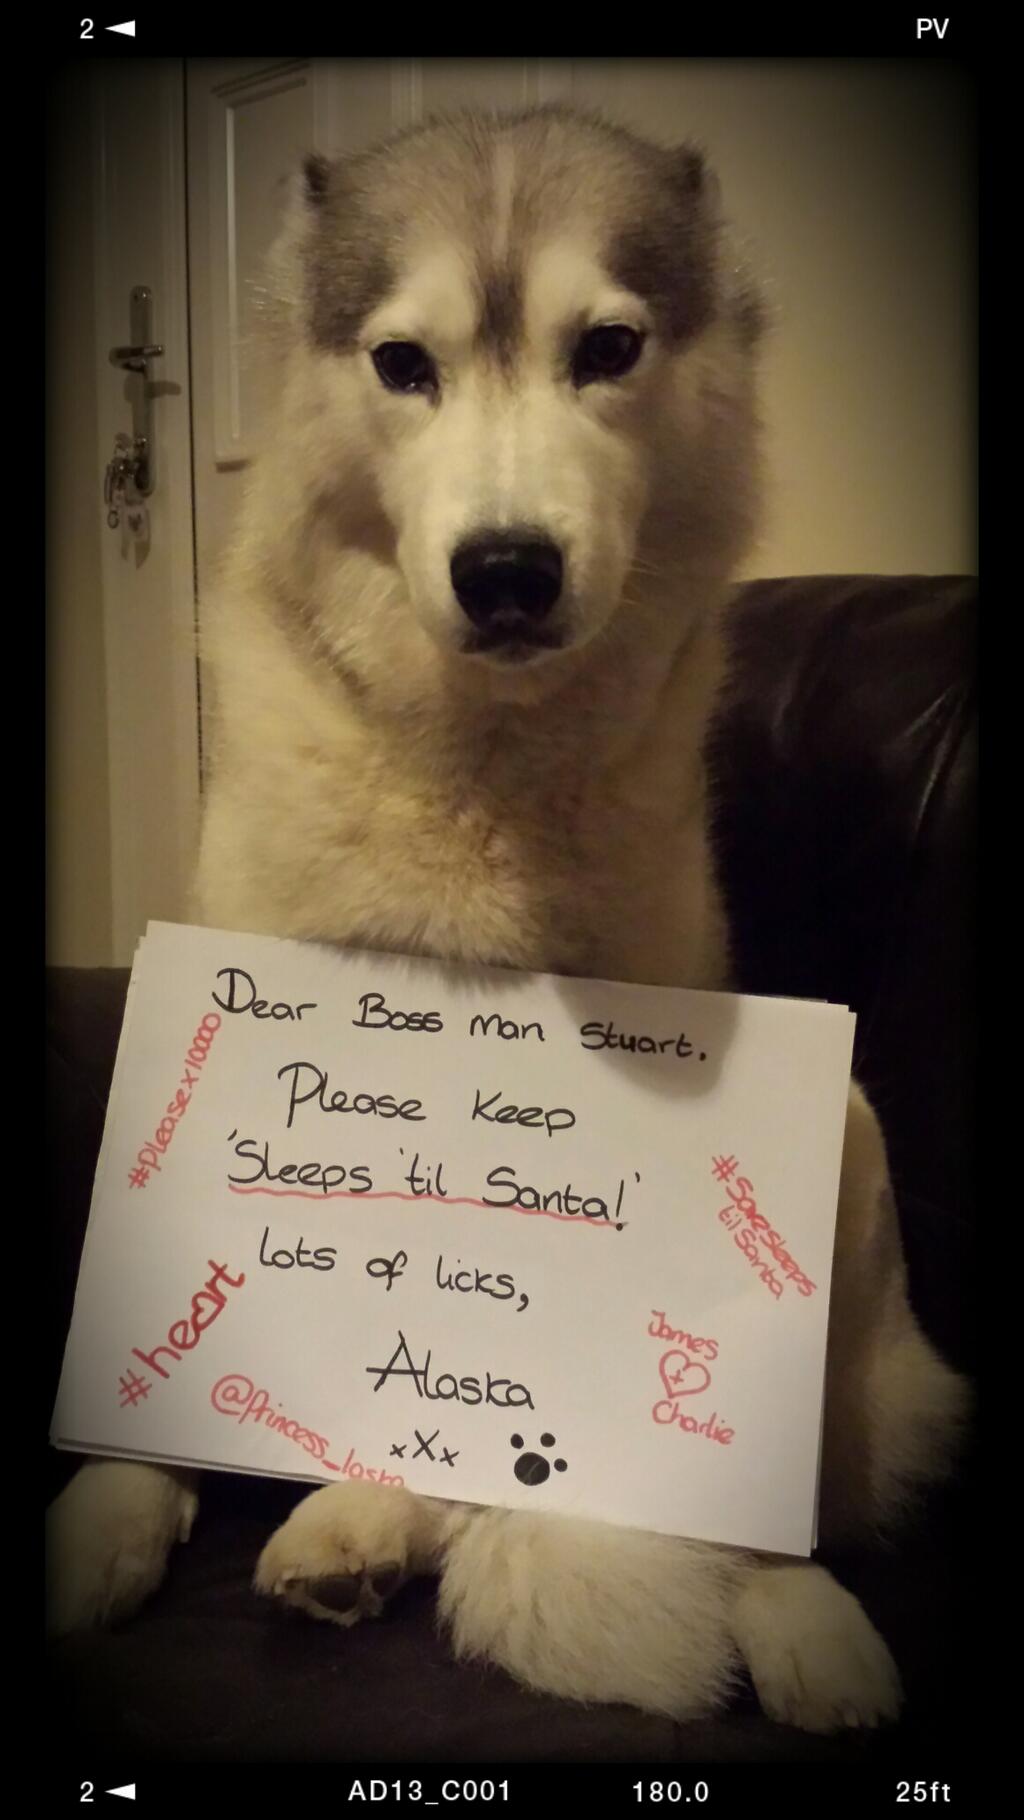 2 ◄ PV
Dear Boss Man Stuart.
Please Keep
'Sleeps 'til Santa!'
lots of licks,
Alaska
xXx
#pleasex10000
#heart
@Princess_laska
#Savesleeps
tilSanta
James
+
Charlie
2 ◄ AD13_C001 180.0 25ft